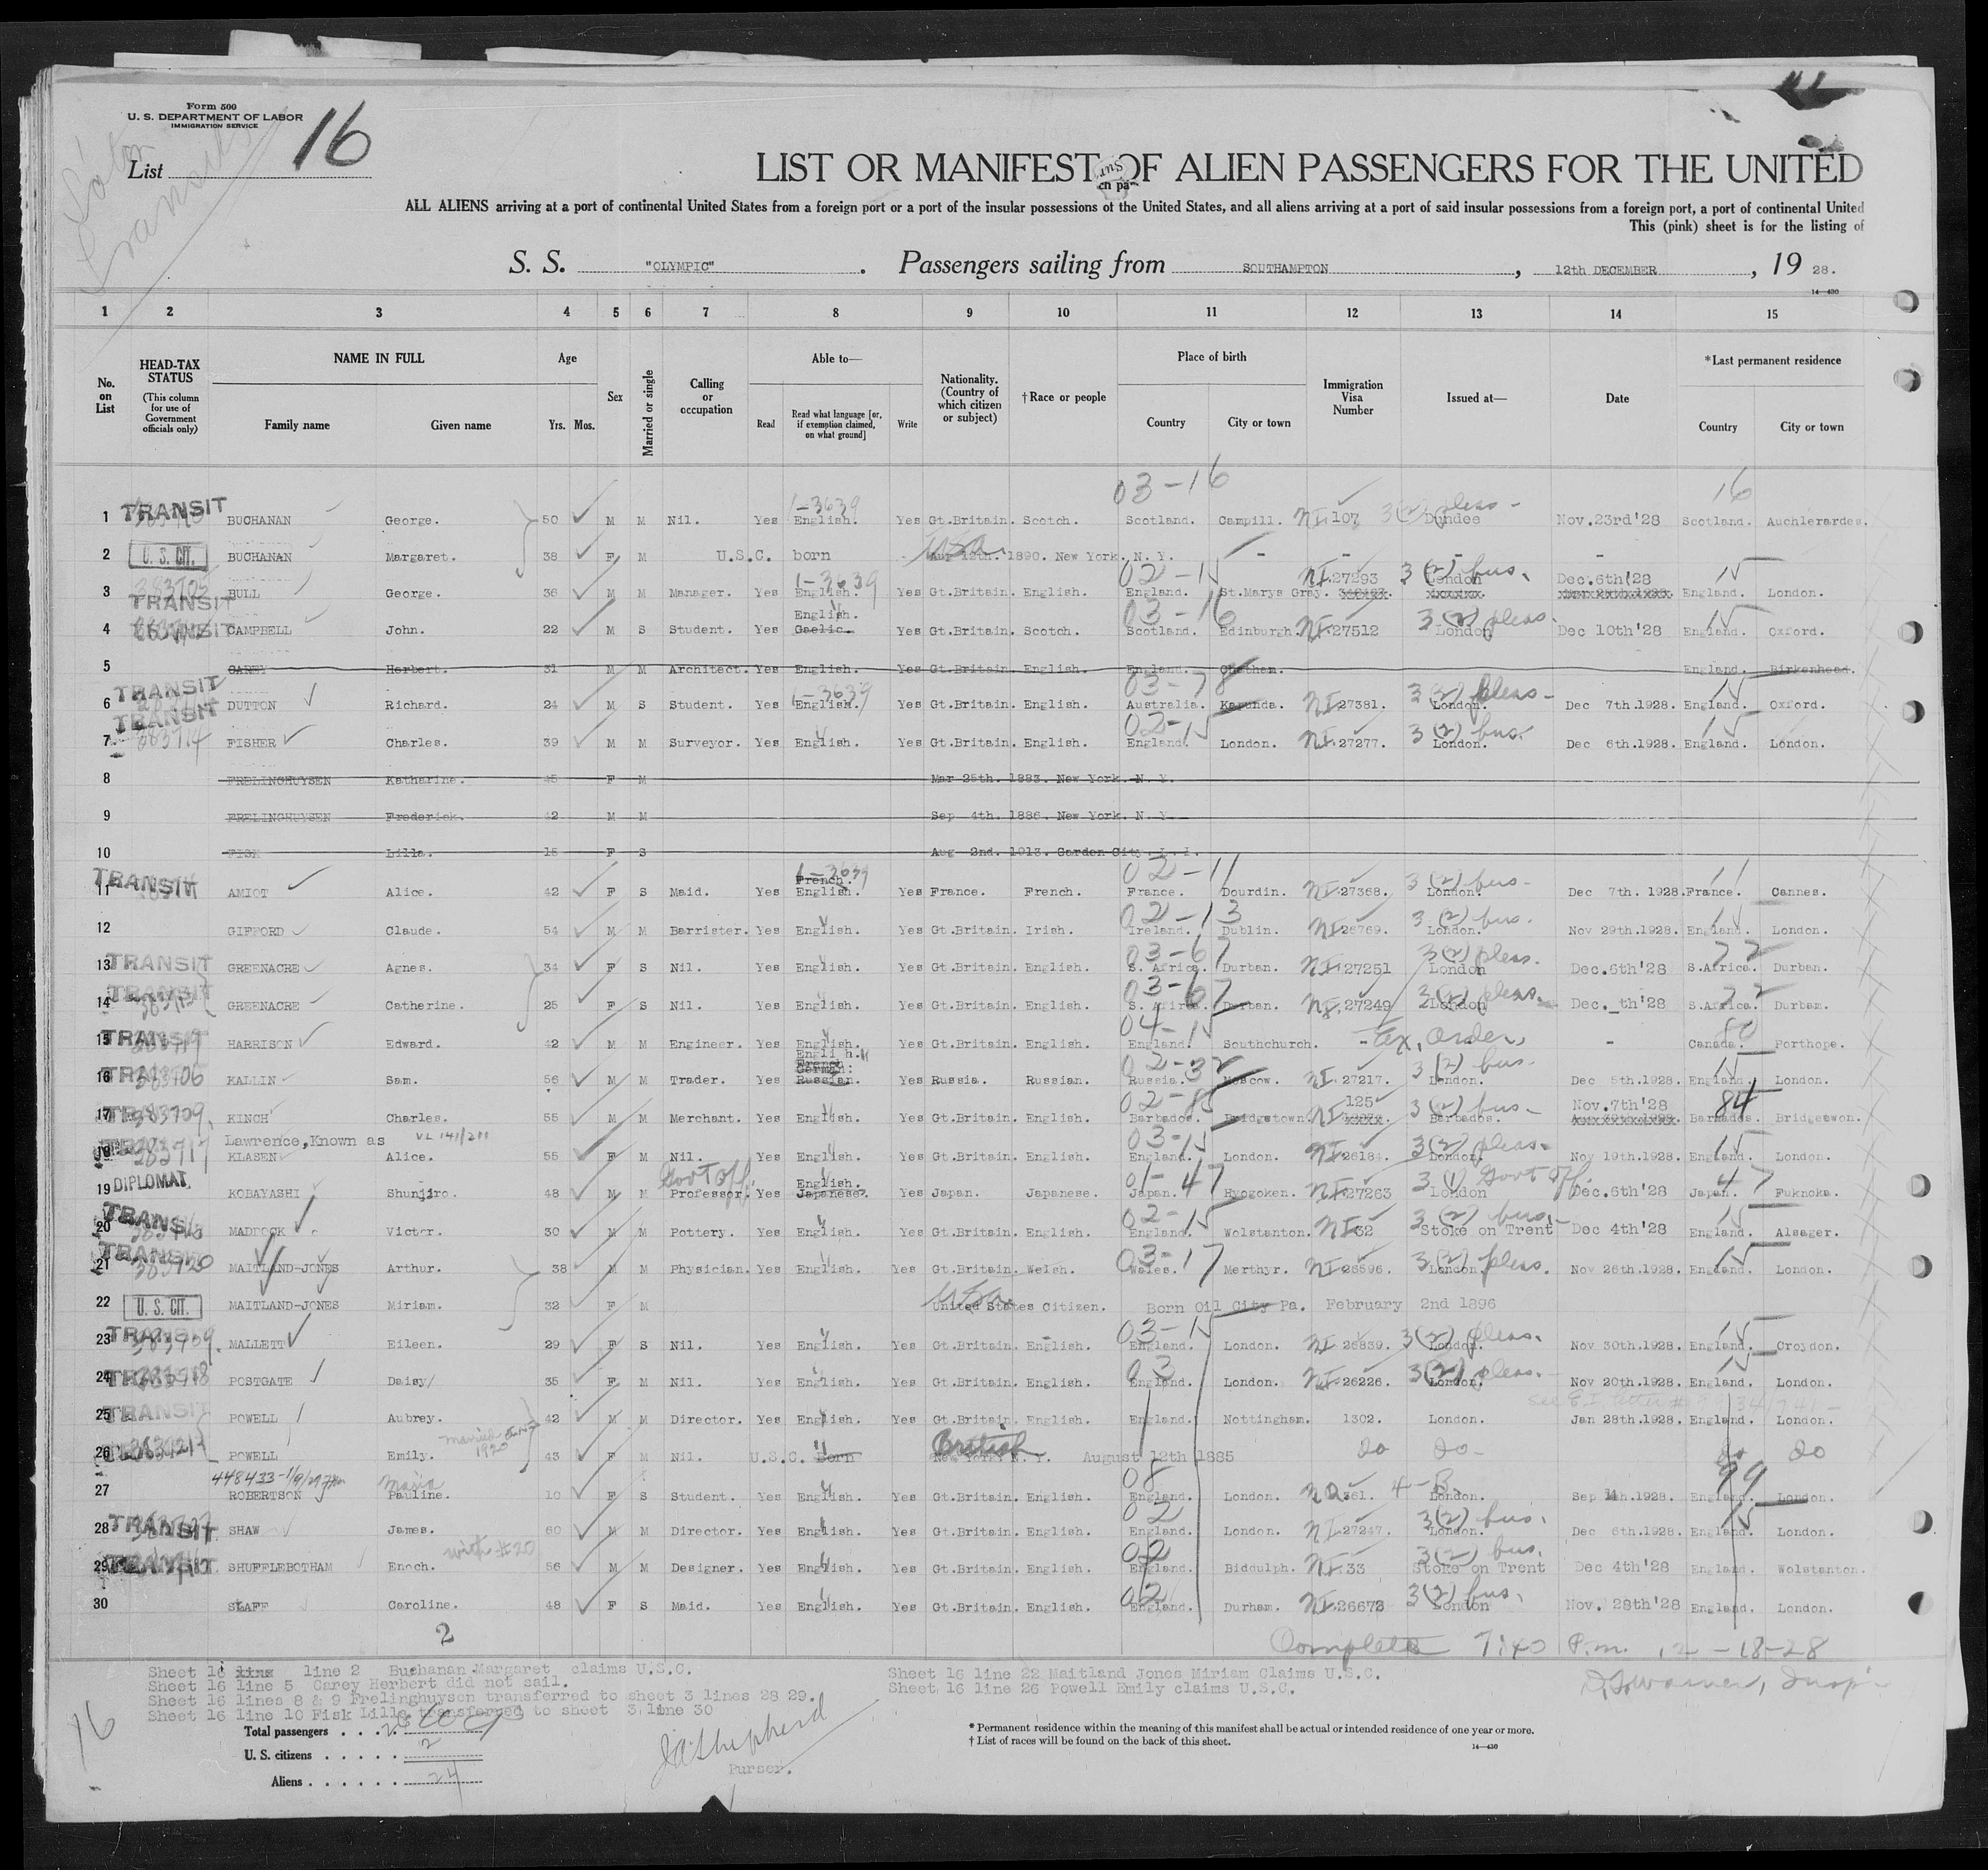 Form 500
U. S. DEPARTMENT OF LABOR
IMMIGRATION SERVICE
List 16
LIST OR MANIFEST OF ALIEN PASSENGERS FOR THE UNITED
ALL ALIENS arriving at a port of continental United States from a foreign port or a port of the insular possessions of the United States, and all aliens arriving at a port of said insular possessions from a foreign port, a port of continental United
This (pink) sheet is for the listing of
S. S. "OLYMPIC" . Passengers sailing from SOUTHAMPTON , 12th DECEMBER , 19 28.
14—430
1 2 3 4 5 6 7 8 9 10 11 12 13 14 15
No. on List
HEAD-TAX STATUS
(This column for use of Government officials only)
NAME IN FULL
Family name Given name
Age
Yrs. Mos.
Sex
Married or single
Calling or occupation
Able to—
Read
Read what language [or, if exemption claimed, on what ground]
Write
Nationality. (Country of which citizen or subject)
† Race or people
Place of birth
Country City or town
Immigration Visa Number
Issued at—
Date
*Last permanent residence
Country City or town
03-16 16
1 TRANSIT BUCHANAN George. 50 M M Nil. Yes English. Yes Gt.Britain. Scotch. Scotland. Campill. NI 107 3(2) pleas- Dundee Nov.23rd'28 Scotland. Auchlerardes.
2 U. S. CIT. BUCHANAN Margaret. 38 F M U.S.C. born 1890. New York. N. Y. - - - -
02-15 15
3 TRANSIT BULL George. 36 M M Manager. Yes 1-3639 English. Yes Gt.Britain. English. England. St.Marys Gray. NI 27293 3(2) bus. London Dec.6th'28 England. London.
03-16 15
4 TRANSIT CAMPBELL John. 22 M S Student. Yes English. Gaelic. Yes Gt.Britain. Scotch. Scotland. Edinburgh. NI 27512 3(2) pleas. London Dec 10th'28 England. Oxford.
5 CAREY Herbert. 31 M M Architect. Yes English. Yes Gt.Britain. English. England. England. Birkenhead.
03-78 15
6 TRANSIT DUTTON Richard. 24 M S Student. Yes 1-3639 English. Yes Gt.Britain. English. Australia. Kapunda. NI 27381. 3(2) pleas- London. Dec 7th.1928. England. Oxford.
02-15 15
7 TRANSIT 383714 FISHER Charles. 39 M M Surveyor. Yes English. Yes Gt.Britain. English. England. London. NI 27277. 3(2) bus. London. Dec 6th.1928. England. London.
8 FRELINGHUYSEN Katharine. 45 F M Mar 25th. 1883. New York. N. Y.
9 FRELINGHUYSEN Frederick. 42 M M Sep 4th. 1886. New York. N. Y.
10 FISK Lilla. 15 F S Aug 2nd. 1913. Garden City. L. I.
02-11 11
11 TRANSIT AMIOT Alice. 42 F S Maid. Yes French. English. Yes France. French. France. Dourdin. NI 27368. 3(2) bus- London. Dec 7th. 1928. France. Cannes.
02-13 15
12 GIFFORD Claude. 54 M M Barrister. Yes English. Yes Gt.Britain. Irish. Ireland. Dublin. NI 26769. 3(2) bus. London. Nov 29th.1928. England. London.
03-67 72
13 TRANSIT GREENACRE Agnes. 34 F S Nil. Yes English. Yes Gt.Britain. English. S. Africa. Durban. NI 27251 3(2) pleas. London Dec.6th'28 S.Africa. Durban.
03-67 72
14 TRANSIT GREENACRE Catherine. 25 F S Nil. Yes English. Yes Gt.Britain. English. S. Africa. Durban. NI 27249 3(2) pleas. London Dec._th'28 S.Africa. Durbam.
04-15 80
15 TRANSIT HARRISON Edward. 42 M M Engineer. Yes English. Yes Gt.Britain. English. England. Southchurch. - Ex. Order, - Canada. Porthope.
02-32 15
16 KALLIN Sam. 56 M M Trader. Yes Engli h. French. German: Russian. Yes Russia. Russian. Russia. Moscow. NI 27217. 3(2) bus. London. Dec 5th.1928. England. London.
02-85 84
17 383709. KINCH Charles. 55 M M Merchant. Yes English. Yes Gt.Britain. English. Barbados. Bridgetown. NI 125 3(2) bus- Barbados. Nov.7th'28 Barbados. Bridgetwon.
Lawrence,Known as VL 141/211
03-15 15
18 383717 KLASEN Alice. 55 F M Nil. Yes English. Yes Gt.Britain. English. England. London. NI 26184. 3(2) pleas. London. Nov 19th.1928. England. London.
01-47 47
19 DIPLOMAT. KOBAYASHI Shunjiro. 48 M M Govt Off. Professor. Yes English. Japanese. Yes Japan. Japanese. Japan. Hyogoken. NI 27263 3(1) Govt Off. London Dec.6th'28 Japan. Fuknoka.
02-15 15
20 TRANSIT MADDOCK Victor. 30 M M Pottery. Yes English. Yes Gt.Britain. English. England. Wolstanton. NI 32 3(2) bus. Stoke on Trent Dec 4th'28 England. Alsager.
03-17 15
21 TRANSIT 383720 MAITLAND-JONES Arthur. 38 M M Physician. Yes English. Yes Gt.Britain. Welsh. Wales. Merthyr. NI 26596. 3(2) pleas. London. Nov 26th.1928. England. London.
22 U. S. CIT. MAITLAND-JONES Miriam. 32 F M United States Citizen. Born Oil City Pa. February 2nd 1896
03-15 15
23 TRANSIT MALLETT Eileen. 29 F S Nil. Yes English. Yes Gt.Britain. English. England. London. NI 26839. 3(2) pleas. London. Nov 30th.1928. England. Croydon.
03 15
24 POSTGATE Daisy/ 35 F M Nil. Yes English. Yes Gt.Britain. English. England. London. NI 26226. 3(2) pleas. London. Nov 20th.1928. England. London.
25 TRANSIT POWELL Aubrey. 42 M M Director. Yes English. Yes Gt.Britain. English. England. Nottingham. 1302. London. Jan 28th.1928. England. London.
married 1920
26 POWELL Emily. 43 F M Nil. U.S.C. Born British New York. N. Y. August 12th 1885 do do- do do
448433-1/9/29 Maria 08 79
27 ROBERTSON Pauline. 10 F S Student. Yes English. Yes Gt.Britain. English. England. London. 361. 4-B. London. Sep 14th.1928. England. London.
02 15
28 TRANSIT SHAW James. 60 M M Director. Yes English. Yes Gt.Britain. English. England. London. NI 27247. 3(2) bus. London. Dec 6th.1928. England. London.
with #20 02
29 TRANSIT SHUFFLEBOTHAM Enoch. 56 M M Designer. Yes English. Yes Gt.Britain. English. England. Bidoulph. NI 33 3(2) bus. Stoke on Trent Dec 4th'28 England. Wolstanton.
02
30 SLAFF Caroline. 48 F S Maid. Yes English. Yes Gt.Britain. English. England. Durham. NI 26673 3(2) bus. London Nov. 28th'28 England. London.
2
Complete 7:40 P.m. 12-18-28
Sheet 16 line 2 Buchanan Margaret claims U.S.C.
Sheet 16 line 5 Carey Herbert did not sail.
Sheet 16 lines 8 & 9 Frelinghuysen transferred to sheet 3 lines 28 29.
Sheet 16 line 10 Fisk Lilla transferred to sheet 3 line 30
Sheet 16 line 22 Maitland Jones Miriam Claims U.S.C.
Sheet 16 line 26 Powell Emily claims U.S.C.
16
Total passengers . . .
U. S. citizens . . . . . 2
Aliens . . . . . . 24
J A Shepherd
Purser.
* Permanent residence within the meaning of this manifest shall be actual or intended residence of one year or more.
† List of races will be found on the back of this sheet.
14—430